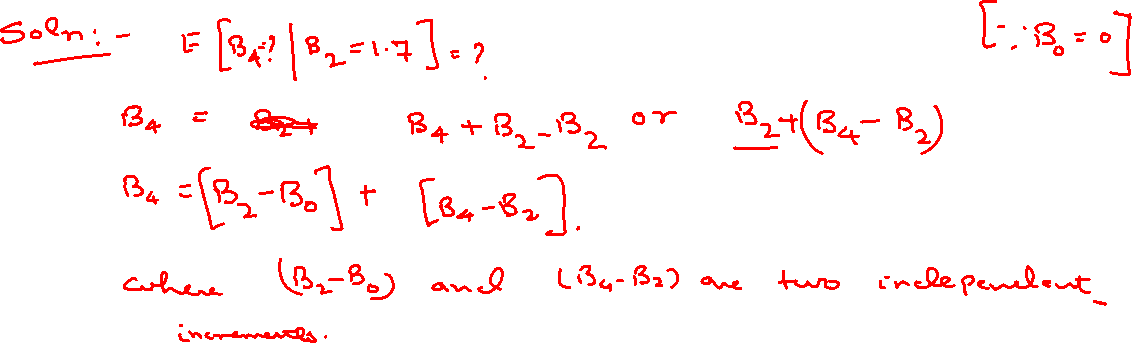 Soln:- E[B₄? | B₂ = 1.7] = ? [∵ B₀ = 0]
B₄ = B₄ + B₂ - B₂ or B₂ + (B₄ - B₂)
B₄ = [B₂ - B₀] + [B₄ - B₂].
where (B₂ - B₀) and (B₄ - B₂) are two independent
increments.